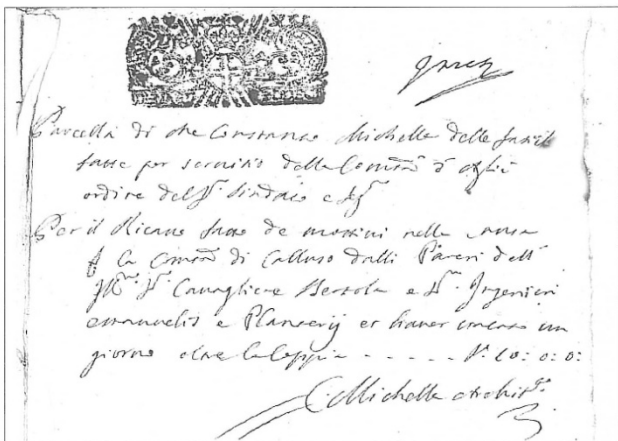 Parcella di me Constanzo Michella delle fatiche
fatte per servitio della Comtà d'Agliè
ordine del Sr. Sindaco e
Per il Ricavo fatto de motivi nella causa
la Comtà di Calluso dalli Pareri dell
Sr. Cavagliere Bertola e Sr. Ingenieri
emanuelis e Planterij et haver imenso un
giorno oltre la Coppia - - - - - 10: 0: 0:
C Michella